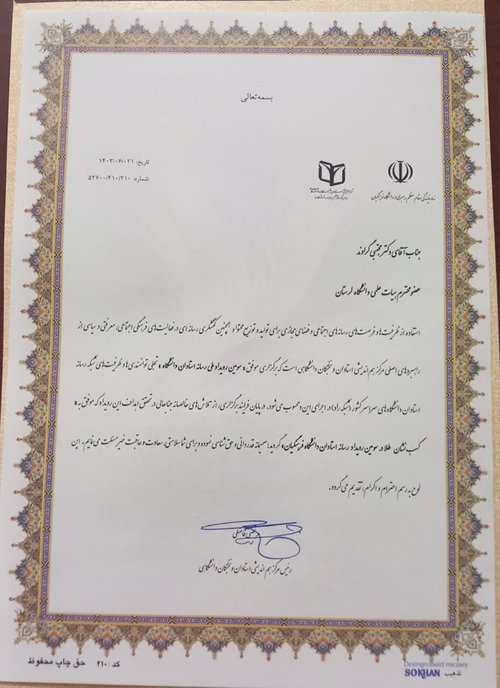 بسمه تعالی
تاریخ: ۱۴۰۲/۰۶/۰۲۱
شماره: ۵۲۷۰۰/۴۱۰/۲۱۰
نهاد نمایندگی مقام معظم رهبری در دانشگاه فرهنگیان
جناب آقای دکتر مجتبی گراوند
عضو محترم هیات علمی دانشگاه لرستان
استفاده از ظرفیت‌ها و فرصت‌های رسانه‌های اجتماعی و فضای مجازی برای تولید و توزیع محتوا و همچنین کنشگری رسانه ای در فعالیت‌های فرهنگی اجتماعی، معرفتی و سیاسی از
راهبردهای اصلی مرکز هم اندیشی استادان و نخبگان دانشگاهی است که برگزاری موفق « سومین رویداد ملی رسانه استادان دانشگاه » تجلی توانمندی ها و ظرفیت‌های شبکه رسانه
استادان دانشگاه های سراسر کشور (شبکه راوا)، در اجرای این محسوب می‌شود. در پایان فرایند برگزاری، از تلاش های خالصانه جنابعالی در تحقق اهداف این رویداد که موفق به
کسب نشان طلا در سومین رویداد رسانه استادان دانشگاه فرهنگیان» گردیدید، صمیمانه قدردانی و حق شناسی نموده و برای شما سلامتی، سعادت و عاقبت خیر مسئلت می‌نمایم. این
لوح به رسم احترام و اکرام، تقدیم می گردد.
رئیس مرکز هم اندیشی استادان و نخبگان دانشگاهی
کد: ۲۱۰ حق چاپ محفوظ
تذهیب SOKHAN